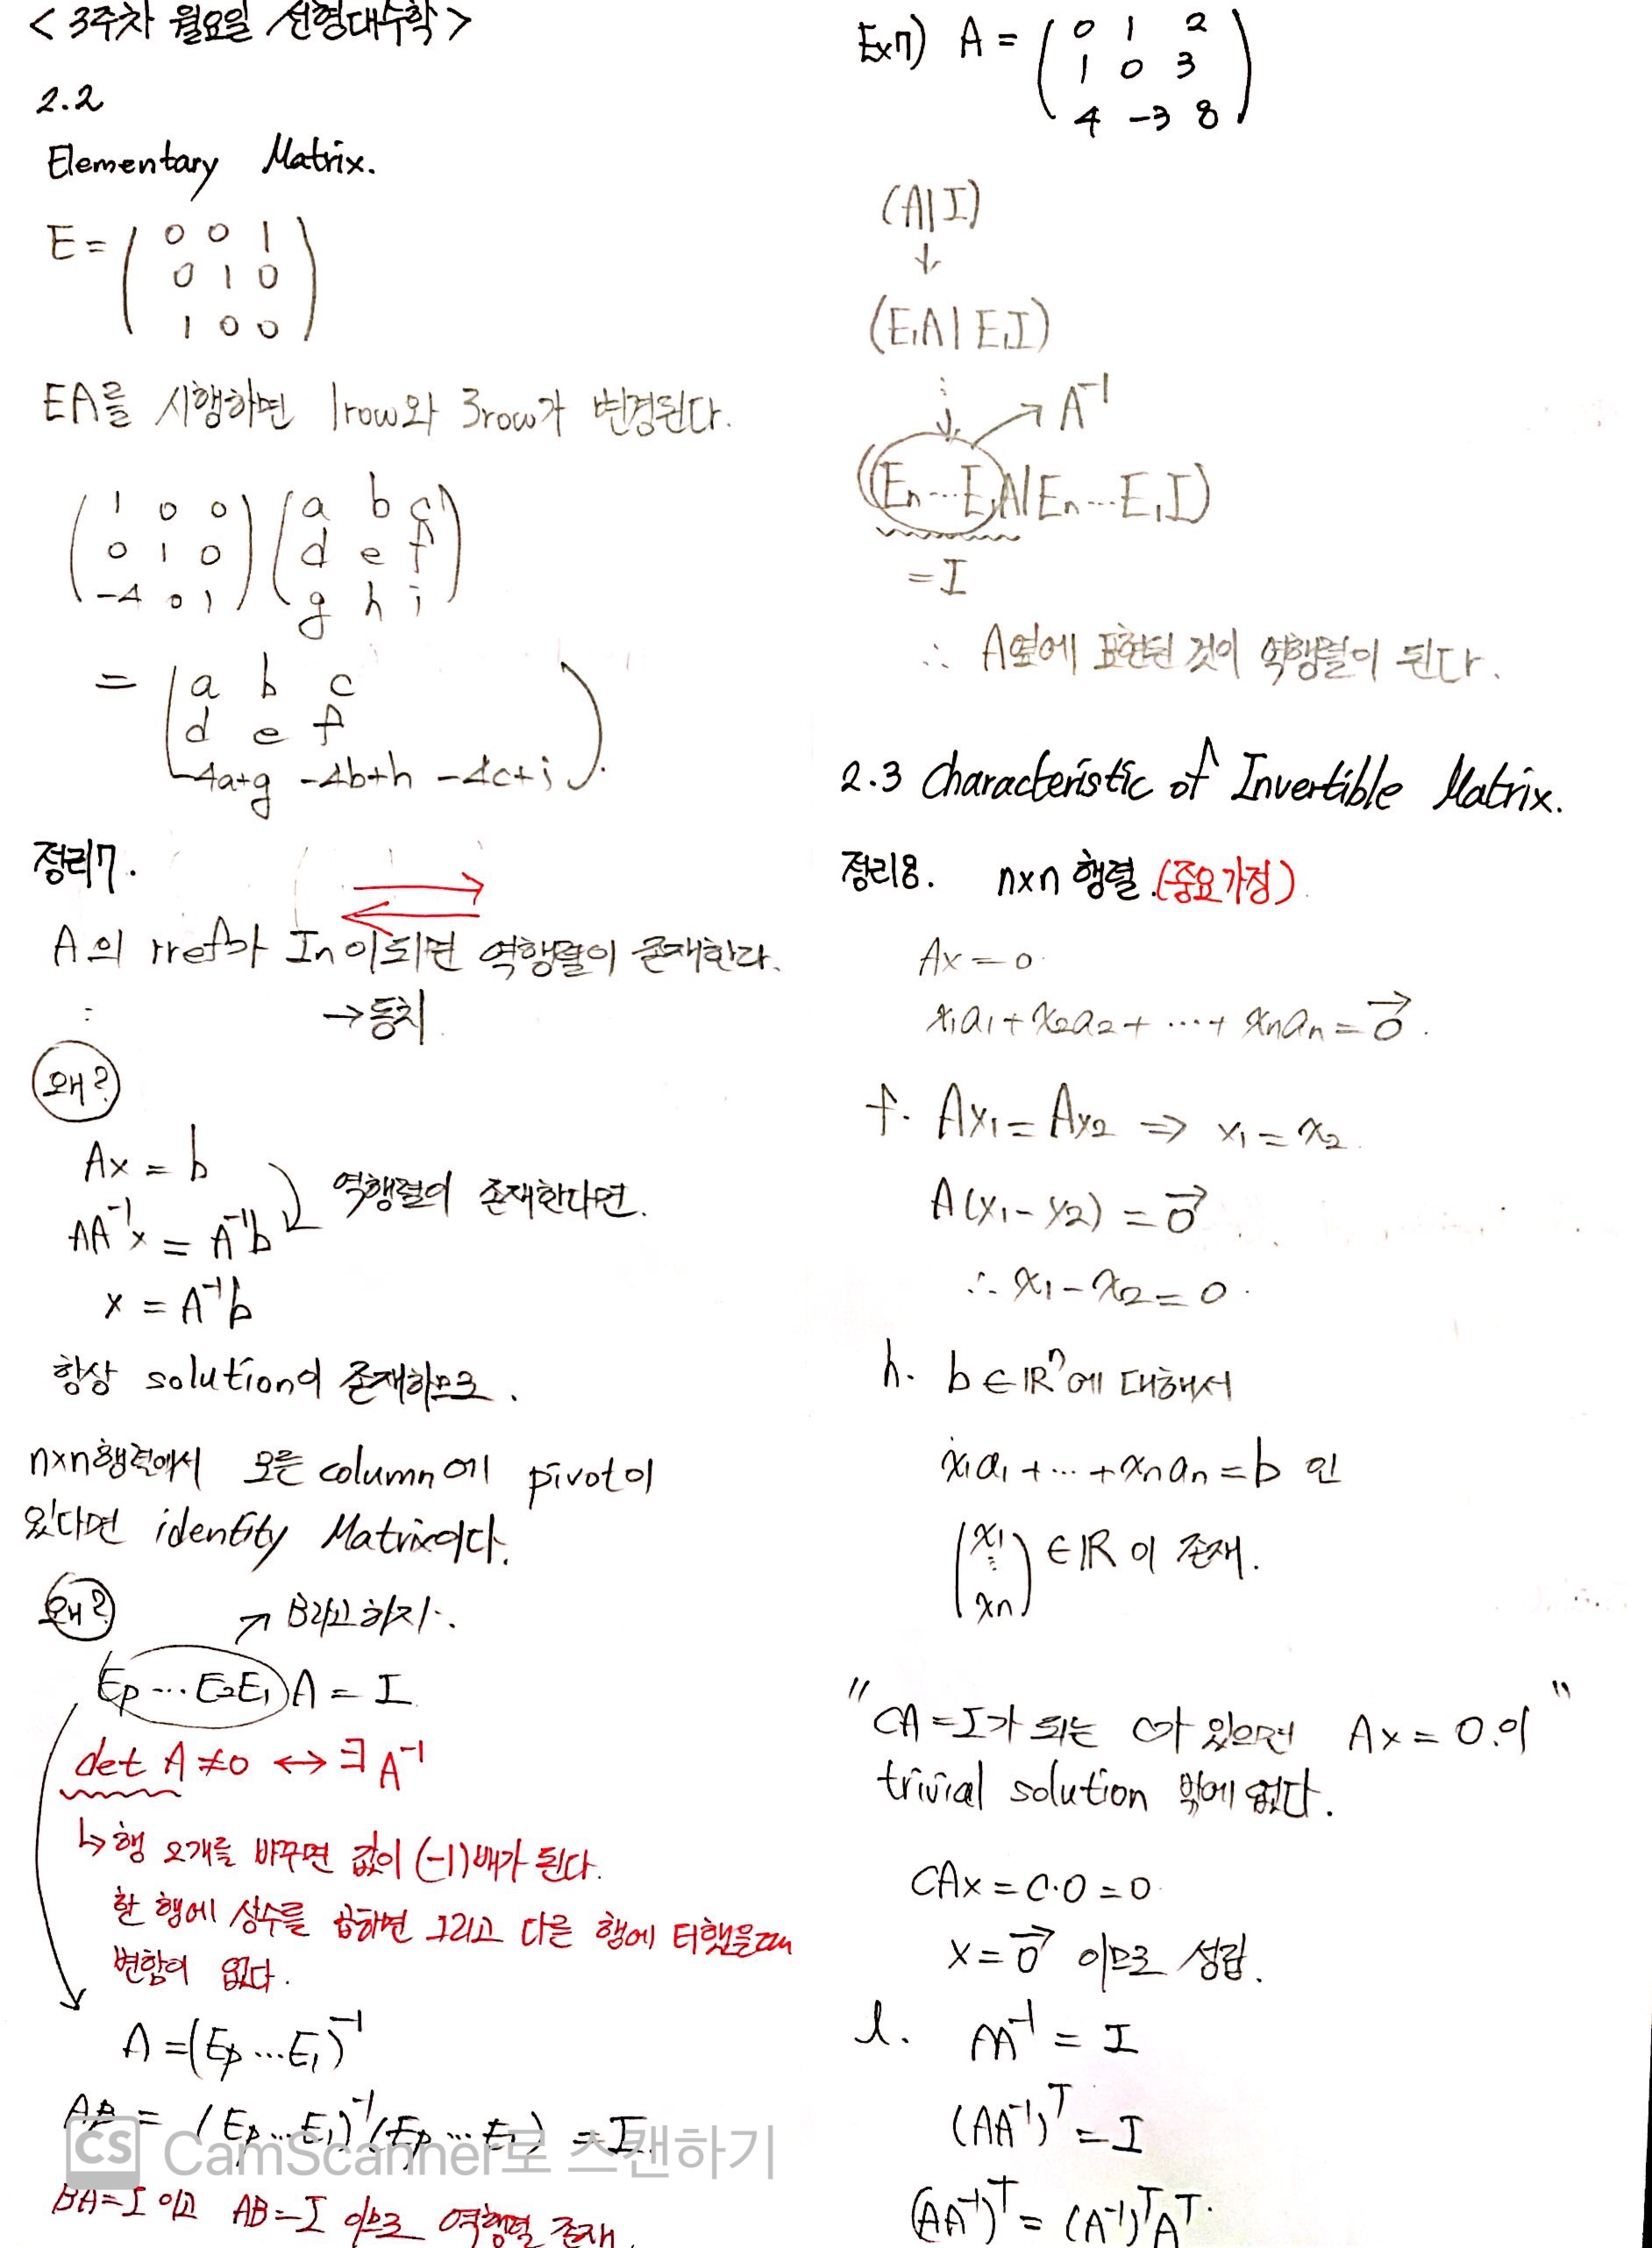 < 3주차 월요일 선형대수학 >
2.2
Elementary Matrix.
E = ( 0 0 1
0 1 0
1 0 0 )
EA를 시행하면 1row와 3row가 변경된다.
( 1 0 0
0 1 0
-4 0 1 ) ( a b c
d e f
g h i )
= ( a b c
d e f
-4a+g -4b+h -4c+i ).
정리7.
A의 rref가 In이되면 역행렬이 존재한다.
→동치
왜?
Ax = b
AA⁻¹x = A⁻¹b 역행렬이 존재한다면.
x = A⁻¹b
항상 solution이 존재하므로.
n×n행렬에서 모든 column에 pivot이
있다면 identity Matrix이다.
왜?
↗ B라고 하자.
(Ep ... E2E1) A = I
det A ≠ 0 ↔ ∃ A⁻¹
↳ 행 2개를 바꾸면 값이 (-1)배가 된다.
한 행에 상수를 곱하면 그리고 다른 행에 더했을때
변함이 없다.
A = (Ep ... E1)⁻¹
AB = (Ep ... E1)⁻¹(Ep ... E1) = I.
CS CamScanner로 스캔하기
BA=I 이고 AB=I 이므로 역행렬 존재.
Ex7) A = ( 0 1 2
1 0 3
4 -3 8 )
(A|I)
↓
(E1A | E1I)
⋮
↓ ↗ A⁻¹
(En ... E1A | En ... E1I)
= I
∴ A옆에 표현된 것이 역행렬이 된다.
2.3 Characteristic of Invertible Matrix.
정리8. n×n 행렬.(중요가정)
Ax = 0
x1a1 + x2a2 + ... + xnan = 0⃗.
f. Ax1 = Ax2 ⇒ x1 = x2.
A(x1 - x2) = 0⃗
∴ x1 - x2 = 0.
h. b ∈ ℝⁿ에 대해서
x1a1 + ... + xnan = b 인
( x1
⋮
xn ) ∈ ℝ 이 존재.
" CA = I가 되는 C가 있으면 Ax = 0.이 "
trivial solution 밖에 없다.
CAx = C·0 = 0
x = 0⃗ 이므로 성립.
l. AA⁻¹ = I
(AA⁻¹)ᵀ = I
(AA⁻¹)ᵀ = (A⁻¹)ᵀAᵀ.